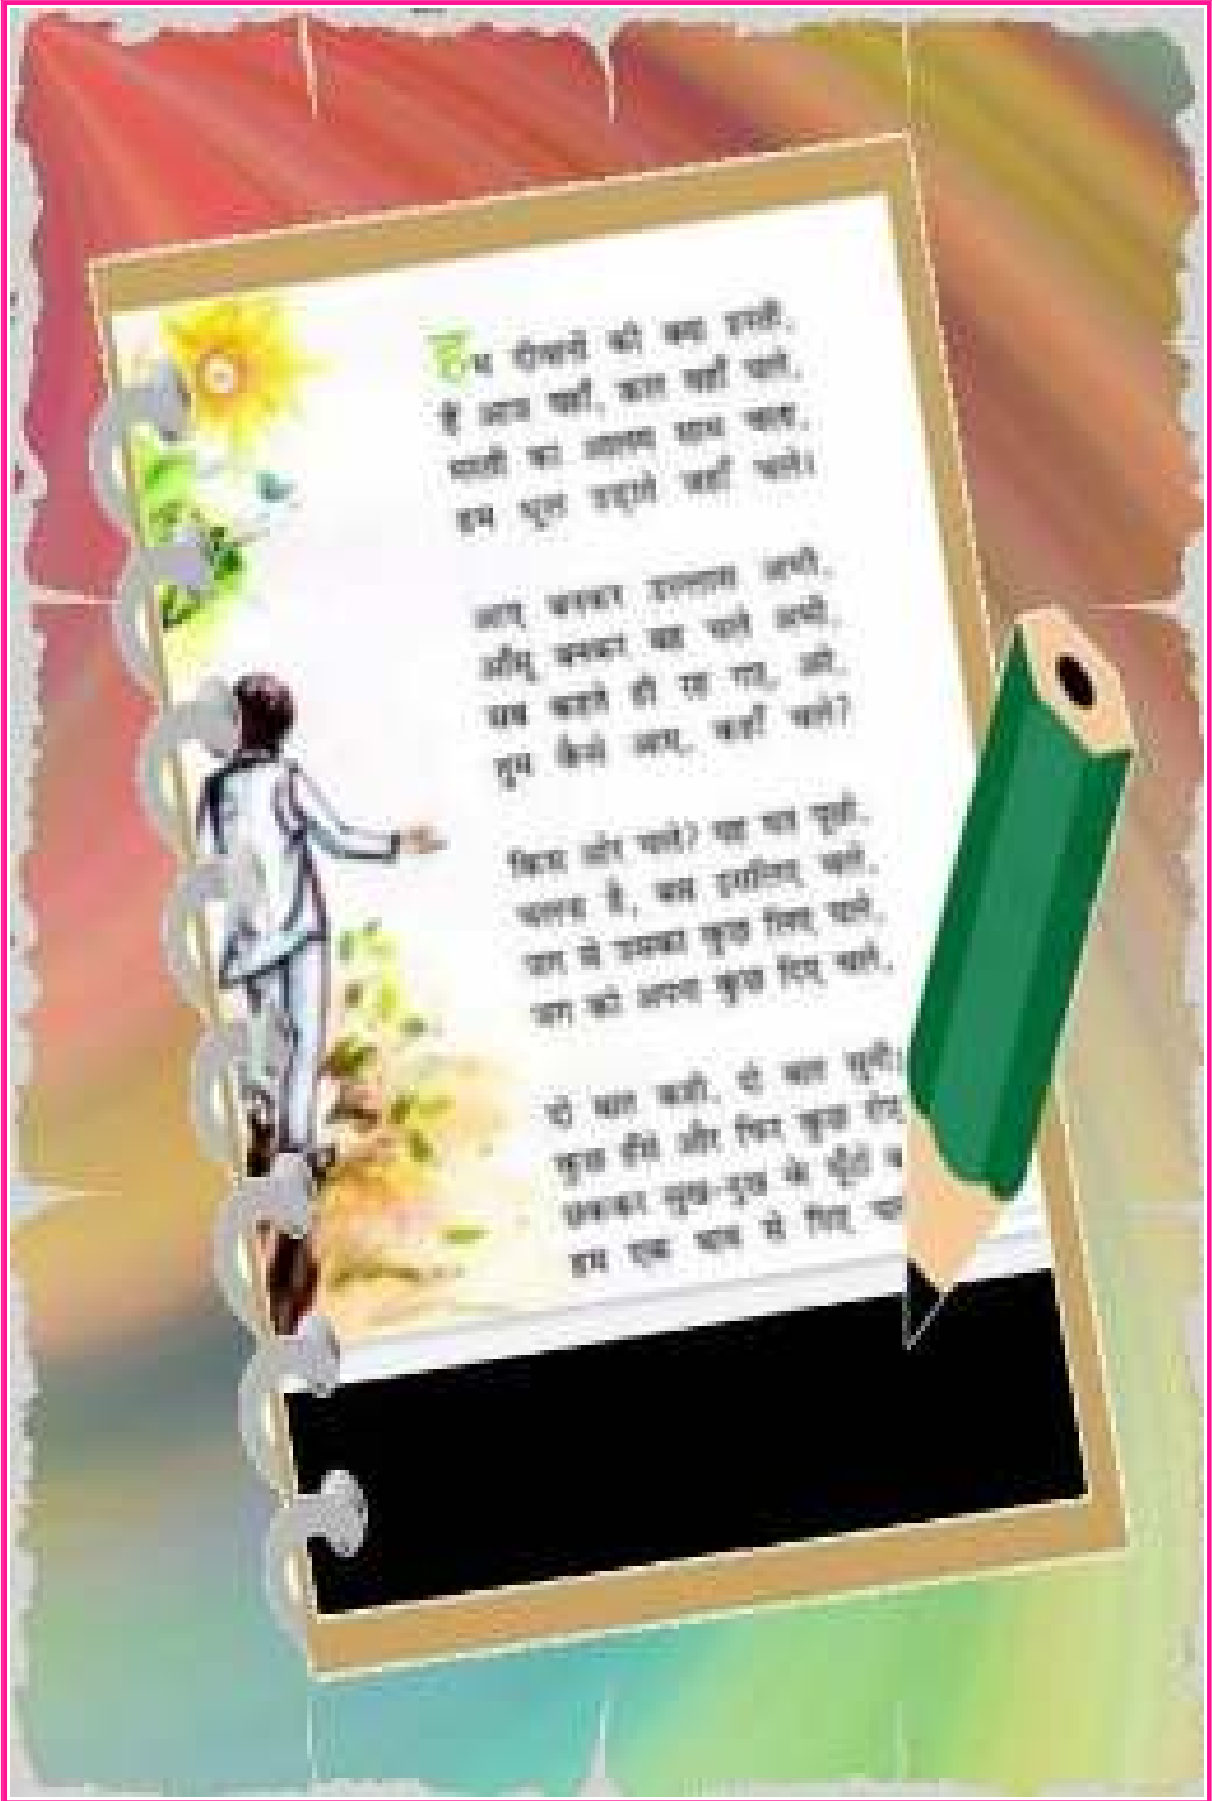 हम दीवानों की क्या हस्ती,
हैं आज यहाँ, कल वहाँ चले,
मस्ती का आलम साथ चला,
हम धूल उड़ाते जहाँ चले।
आए बनकर उल्लास अभी,
आँसू बनकर बह चले अभी,
सब कहते ही रह गए, अरे,
तुम कैसे आए, कहाँ चले?
किस ओर चले? यह मत पूछो,
चलना है, बस इसलिए चले,
जग से उसका कुछ लिए चले,
जग को अपना कुछ दिए चले,
दो बात कही, दो बात सुनी;
कुछ हँसे और फिर कुछ रोए
छककर सुख-दुख के घूँटों को
हम एक भाव से पिए चले